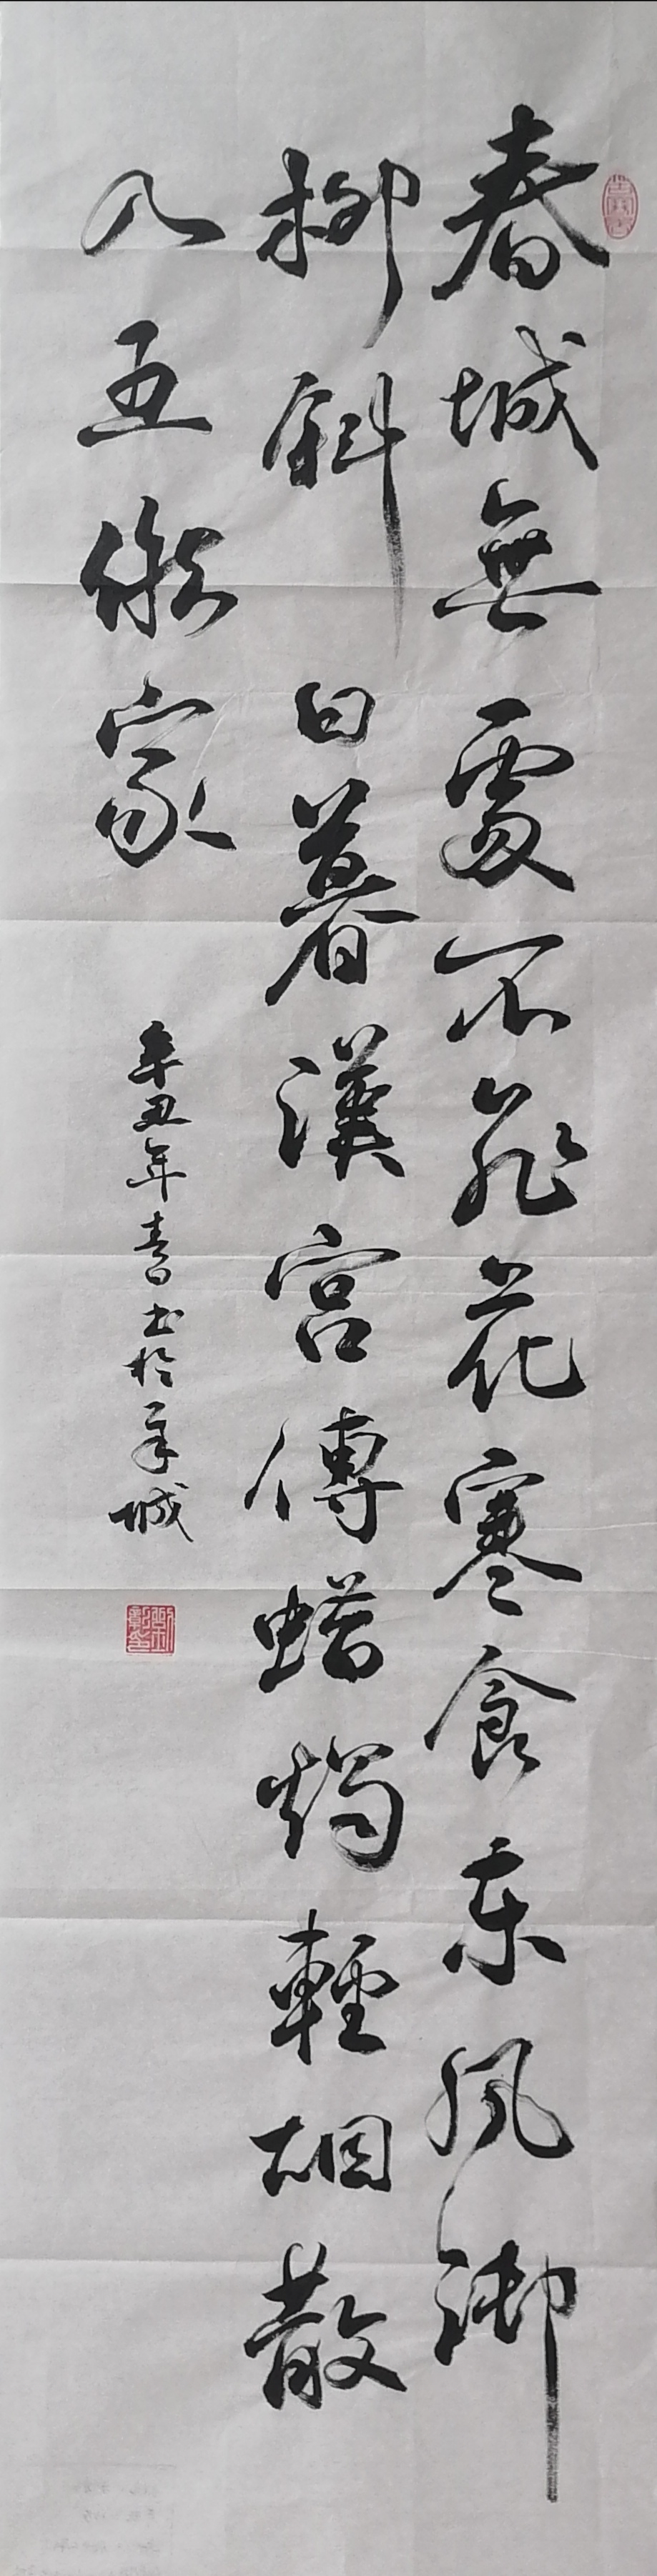 春城無處不飛花寒食東風御
柳斜日暮漢宮傳蠟燭輕烟散
入五侯家
辛丑年春日書於羊城